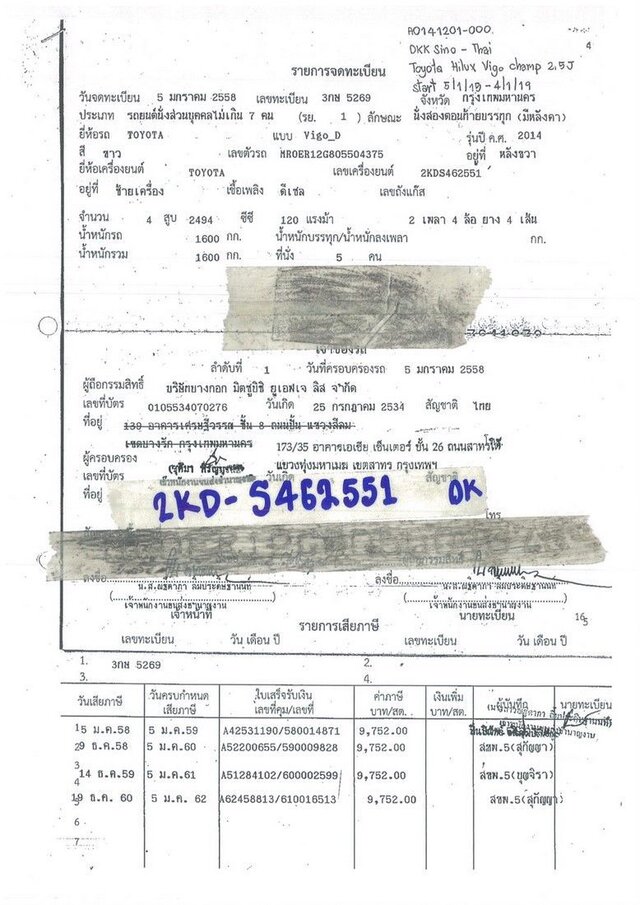 A0141201-000.
DKK Sino - Thai
4
Toyota Hilux Vigo champ 2.5J
รายการจดทะเบียน
Start 5/1/15 - 4/1/19
วันจดทะเบียน 5 มกราคม 2558 เลขทะเบียน 3กษ 5269 จังหวัด กรุงเทพมหานคร
ประเภท รถยนต์นั่งส่วนบุคคลไม่เกิน 7 คน (รย. 1 ) ลักษณะ นั่งสองตอนท้ายบรรทุก (มีหลังคา)
ยี่ห้อรถ TOYOTA แบบ Vigo_D รุ่นปี ค.ศ. 2014
สี ขาว เลขตัวรถ MROER12G805504375 อยู่ที่ หลังขวา
ยี่ห้อเครื่องยนต์ TOYOTA เลขเครื่องยนต์ 2KDS462551
อยู่ที่ ซ้ายเครื่อง เชื้อเพลิง ดีเซล เลขถังแก๊ส
จำนวน 4 สูบ 2494 ซีซี 120 แรงม้า 2 เพลา 4 ล้อ ยาง 4 เส้น
น้ำหนักรถ 1600 กก. น้ำหนักบรรทุก/น้ำหนักลงเพลา กก.
น้ำหนักรวม 1600 กก. ที่นั่ง 5 คน
เจ้าของรถ
ลำดับที่ 1 วันที่ครอบครองรถ 5 มกราคม 2558
ผู้ถือกรรมสิทธิ์ บริษัทบางกอก มิตซูบิชิ ยูเอฟเจ ลิส จำกัด
เลขที่บัตร 0105534070276 วันเกิด 25 กรกฎาคม 2534 สัญชาติ ไทย
ที่อยู่ 139 อาคารเศรษฐีวรรณ ชั้น 8 ถนนปั้น แขวงสีลม
เขตบางรัก กรุงเทพมหานคร 173/35 อาคารเอเชีย เซ็นเตอร์ ชั้น 26 ถนนสาทรใต้
ผู้ครอบครอง แขวงทุ่งมหาเมฆ เขตสาทร กรุงเทพฯ
เลขที่บัตร วันเกิด สัญชาติ
ที่อยู่
2KD-S462551 OK
โทร
ลงชื่อ ลงชื่อ
เจ้าพนักงานขนส่งชำนาญงาน เจ้าพนักงานขนส่งชำนาญงาน
เจ้าหน้าที่ นายทะเบียน
รายการเสียภาษี 165
เลขทะเบียน วัน เดือน ปี เลขทะเบียน วัน เดือน ปี
1. 3กษ 5269 2.
3. 4.
วันเสียภาษี วันครบกำหนดเสียภาษี ใบเสร็จรับเงิน เลขที่คุม/เลขที่ ค่าภาษี บาท/สต. เงินเพิ่ม บาท/สต. ผู้บันทึก นายทะเบียน
5 ม.ค.58 5 ม.ค.59 A42531190/580014871 9,752.00
29 ธ.ค.58 5 ม.ค.60 A52200655/590009828 9,752.00 สขพ.5(สุกัญญา)
14 ธ.ค.59 5 ม.ค.61 A51284102/600002599 9,752.00 สขพ.5(บุญจิรา)
19 ธ.ค. 60 5 ม.ค. 62 A62458813/610016513 9,752.00 สขพ.5(สุกัญญา)
6
7